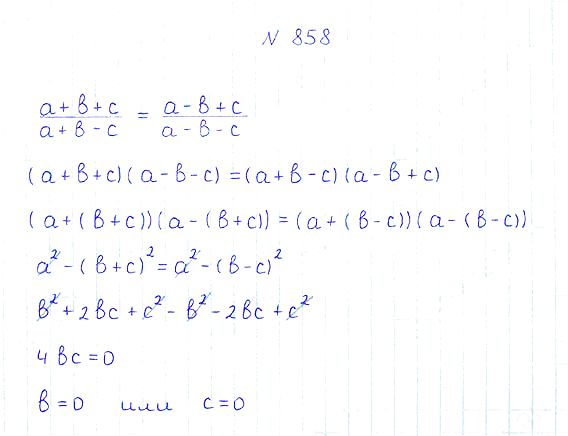 N 858
(a+b+c)/(a+b-c) = (a-b+c)/(a-b-c)
(a+b+c)(a-b-c) = (a+b-c)(a-b+c)
(a+(b+c))(a-(b+c)) = (a+(b-c))(a-(b-c))
a²-(b+c)² = a²-(b-c)²
b²+2bc+c²-b²-2bc+c²
4bc=0
b=0 или c=0